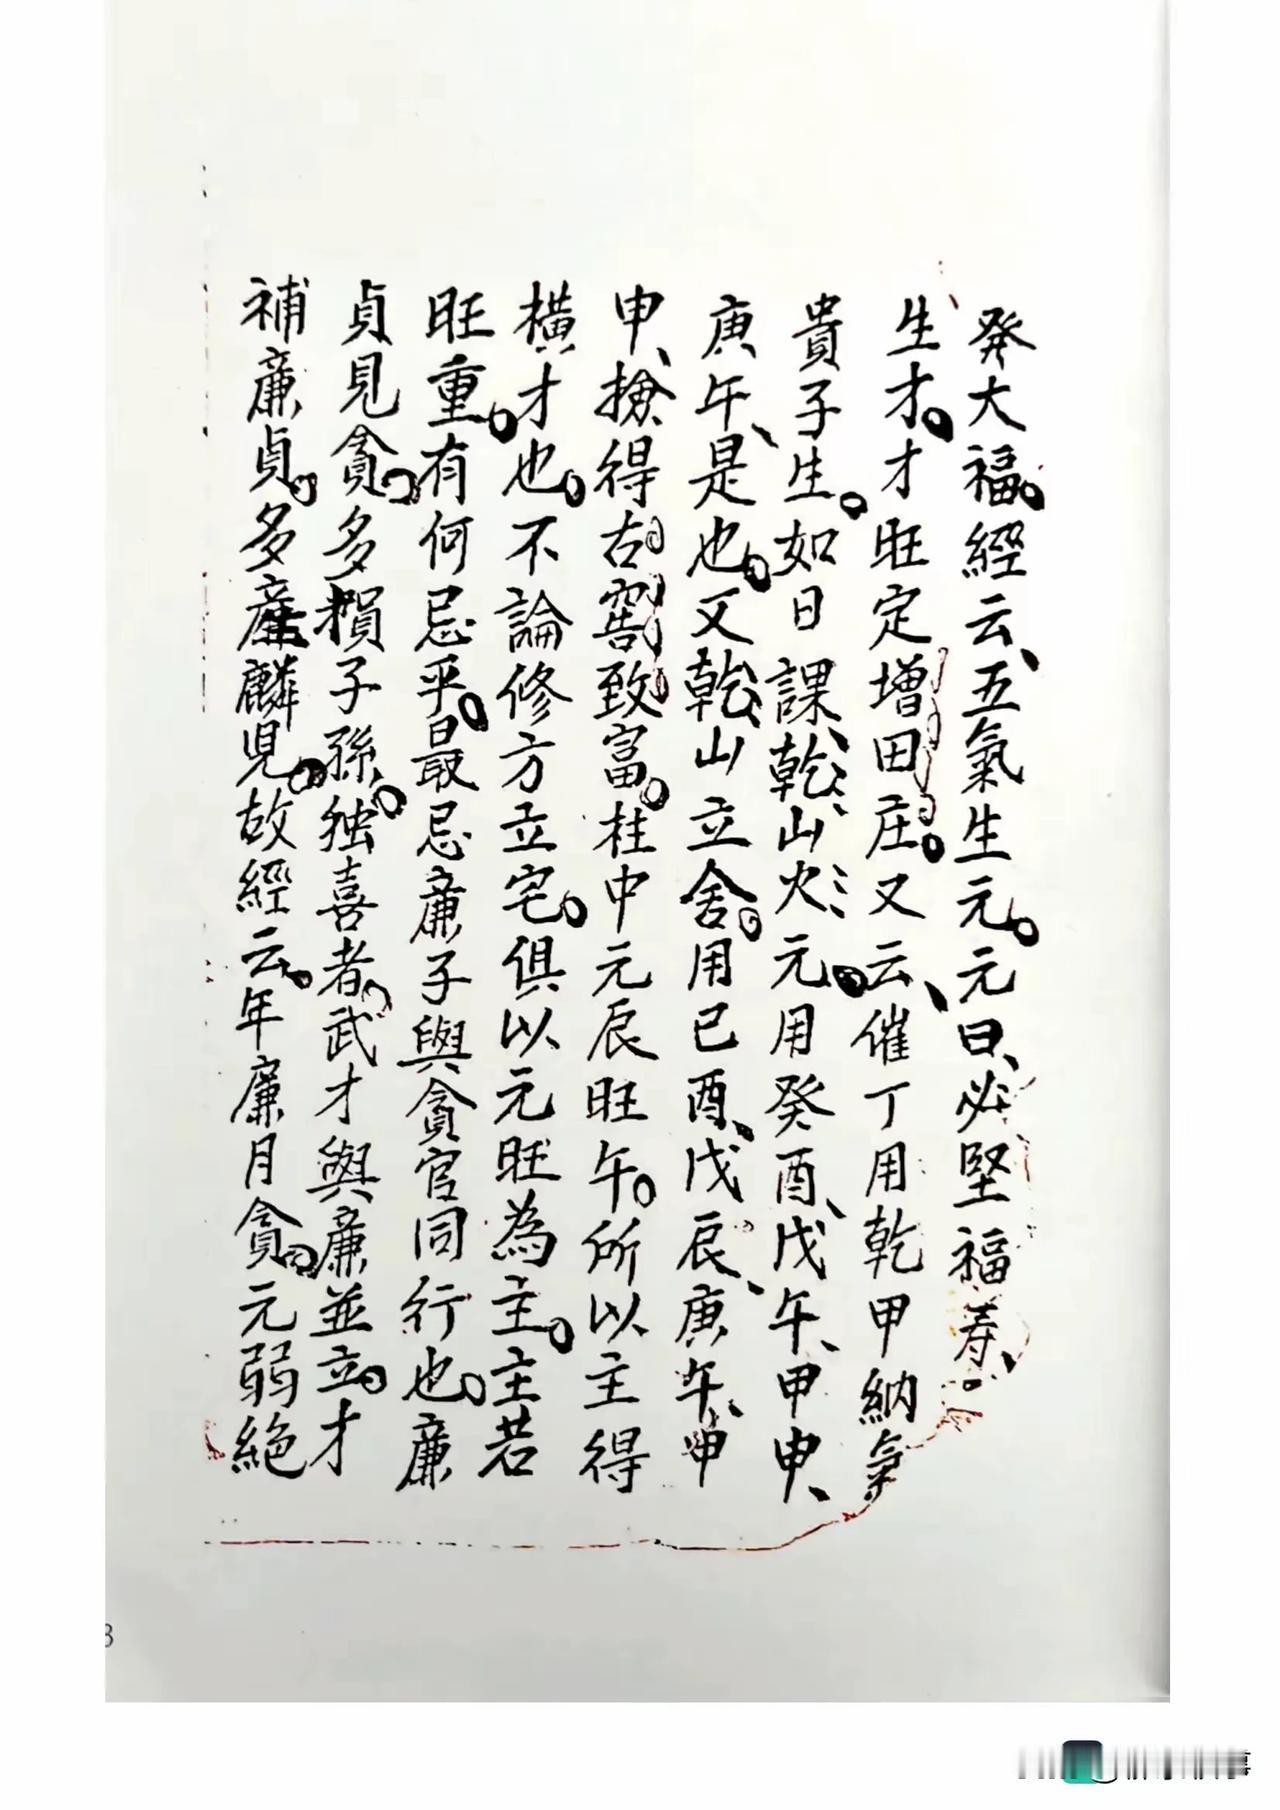 癸大福。經云、五氣生元。元日、必堅福寿、。
生才。才旺定增田庄。又云、催丁用乾甲納氣
貴子生。如日課、乾山火元。用癸酉、戊午、甲申、
庚午、是也。又乾山立舍。用已酉、戊辰、庚午、甲
申、撿得古窖致富。柱中元辰旺午。所以主得
橫才也。不論修方立宅。俱以元旺為主。主若
旺重。有何忌乎。最忌廉子與貪官同行也。廉
貞見貪。多損子孫。独喜者。武才與廉並立。才
補廉貞。多產麟児。故經云。年廉月貪。元弱絕
3